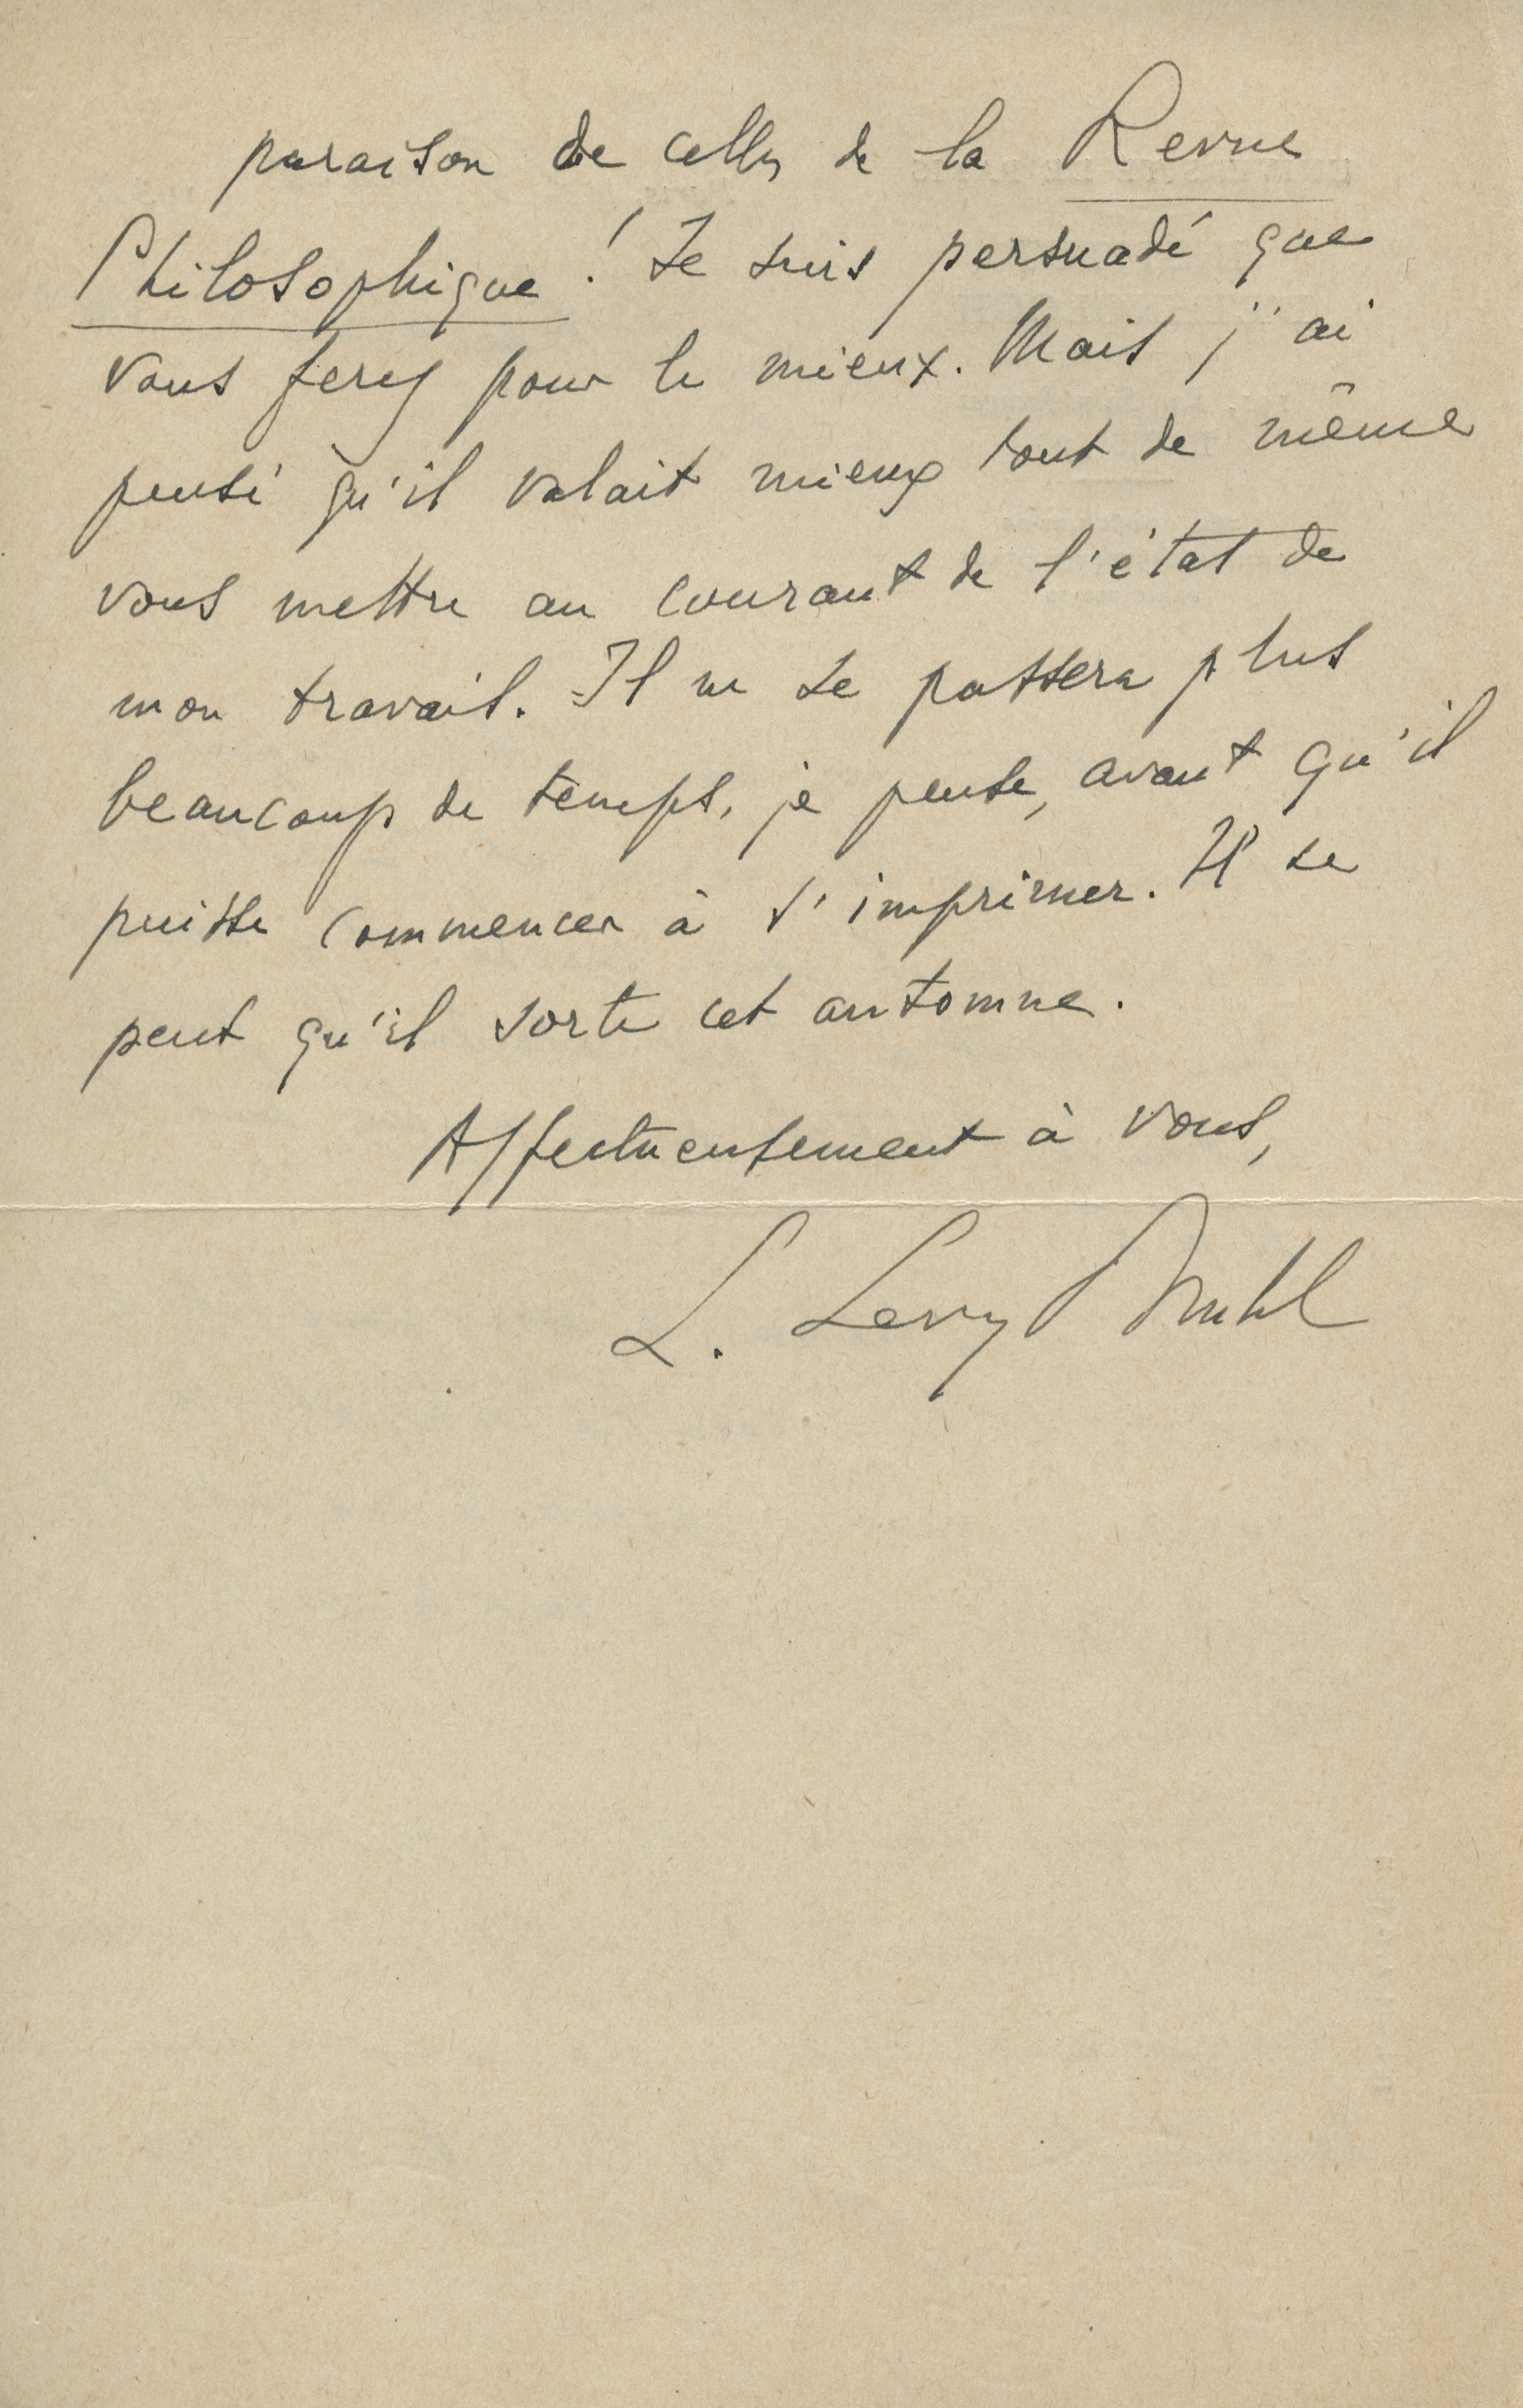 paraison de celles de la Revue
Philosophique ! Je suis persuadé que
vous ferez pour le mieux. Mais j'ai
pensé qu'il valait mieux tout de même
vous mettre au courant de l'état de
mon travail. Il ne se passera plus
beaucoup de temps, je pense, avant qu'il
puisse commencer à s'imprimer. Il se
peut qu'il sorte cet automne.
Affectueusement à vous,
L. Levy Bruhl